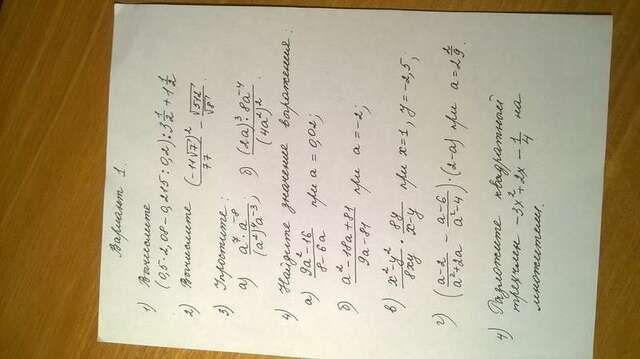 Вариант 1.
1) Вычислите
(0,5·2,08 − 0,215 : 0,2) : 3 1/2 + 1 1/2
2) Вычислите (−11√7)²/77 − √512/√8
3) Упростите :
а) a⁷·a⁻⁸/(a²)⁴a⁻³; б) (2a)³·8a⁻⁴/(4a²)²
4) Найдите значение выражения :
а) 9a²−16/8−6a при a = 0,02;
б) a²−18a+81/9a−81 при a = −2;
в) x²−y²/8xy · 8y/x−y при x=1, y=−2,5,
г) (a−2/a²+2a − a−6/a²−4) · (2−a) при a = 2 2/9.
4) Разложите квадратной
трехчлен −3x²+2x − 1/4 на
множители.